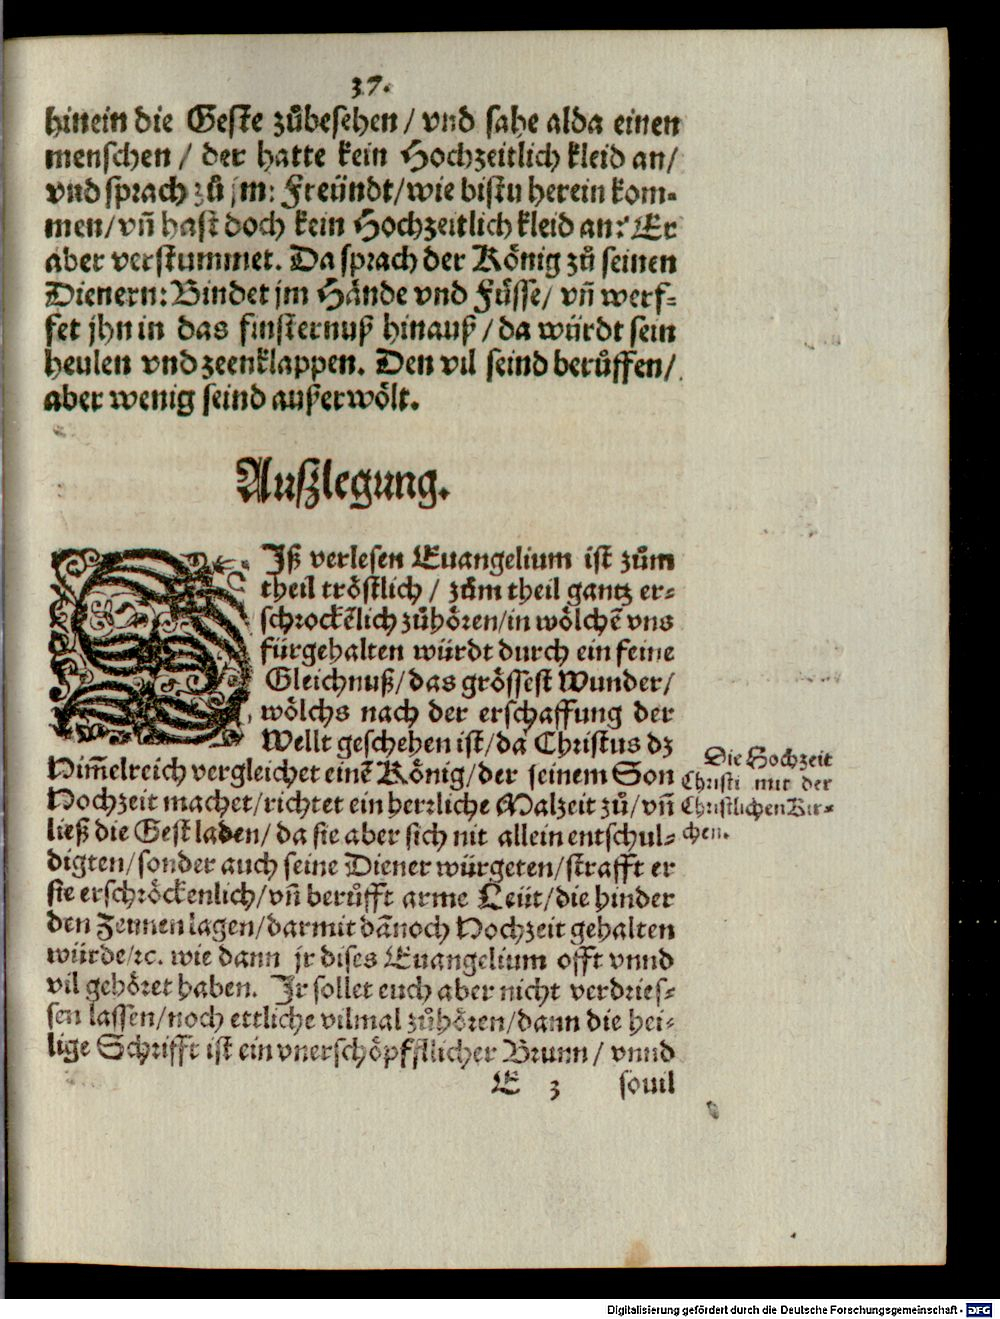 37.
hinein die Geste zůbesehen / vnd sahe alda einen
menschen / der hatte kein Hochzeitlich kleid an/
vnd sprach zů jm: Freündt/wie bistu herein kom-
men/vñ hast doch kein Hochzeitlich kleid an? Er
aber verstummet. Da sprach der König zů seinen
Dienern: Bindet jm Hände vnd Füsse/ vñ werf-
fet jhn in das finsternuß hinauß / da würdt sein
heulen vnd zeenklappen. Den vil seind berůffen/
aber wenig seind außerwölt.
Außlegung.
DIß verlesen Euangelium ist zům
theil tröstlich / zům theil gantz er-
schrockēlich zůhören/in wölchē vns
fürgehalten würdt durch ein feine
Gleichnuß/das grössest Wunder/
wölchs nach der erschaffung der
Wellt geschehen ist/da Christus dz
Him̃elreich vergleichet einē König/der seinem Son
Hochzeit machet/richtet ein herrliche Malzeit zů/vñ
ließ die Gest laden/ da sie aber sich nit allein entschul-
digten/sonder auch seine Diener würgeten/strafft er
sie erschröckenlich/vñ berůfft arme Leüt/die hinder
den Zeunen lagen/darmit dañoch Hochzeit gehalten
würde/ꝛc. wie dann jr dises Euangelium offt vnnd
vil gehöret haben. Jr sollet euch aber nicht verdries-
sen lassen/noch ettliche vilmal zůhören/dann die hei-
lige Schrifft ist ein vnerschöpffllicher Brunn / vnnd
E 3 souil
Die Hochzeit
Christi mit der
Christlichen Kir-
chen.
Digitalisierung gefördert durch die Deutsche Forschungsgemeinschaft - DFG